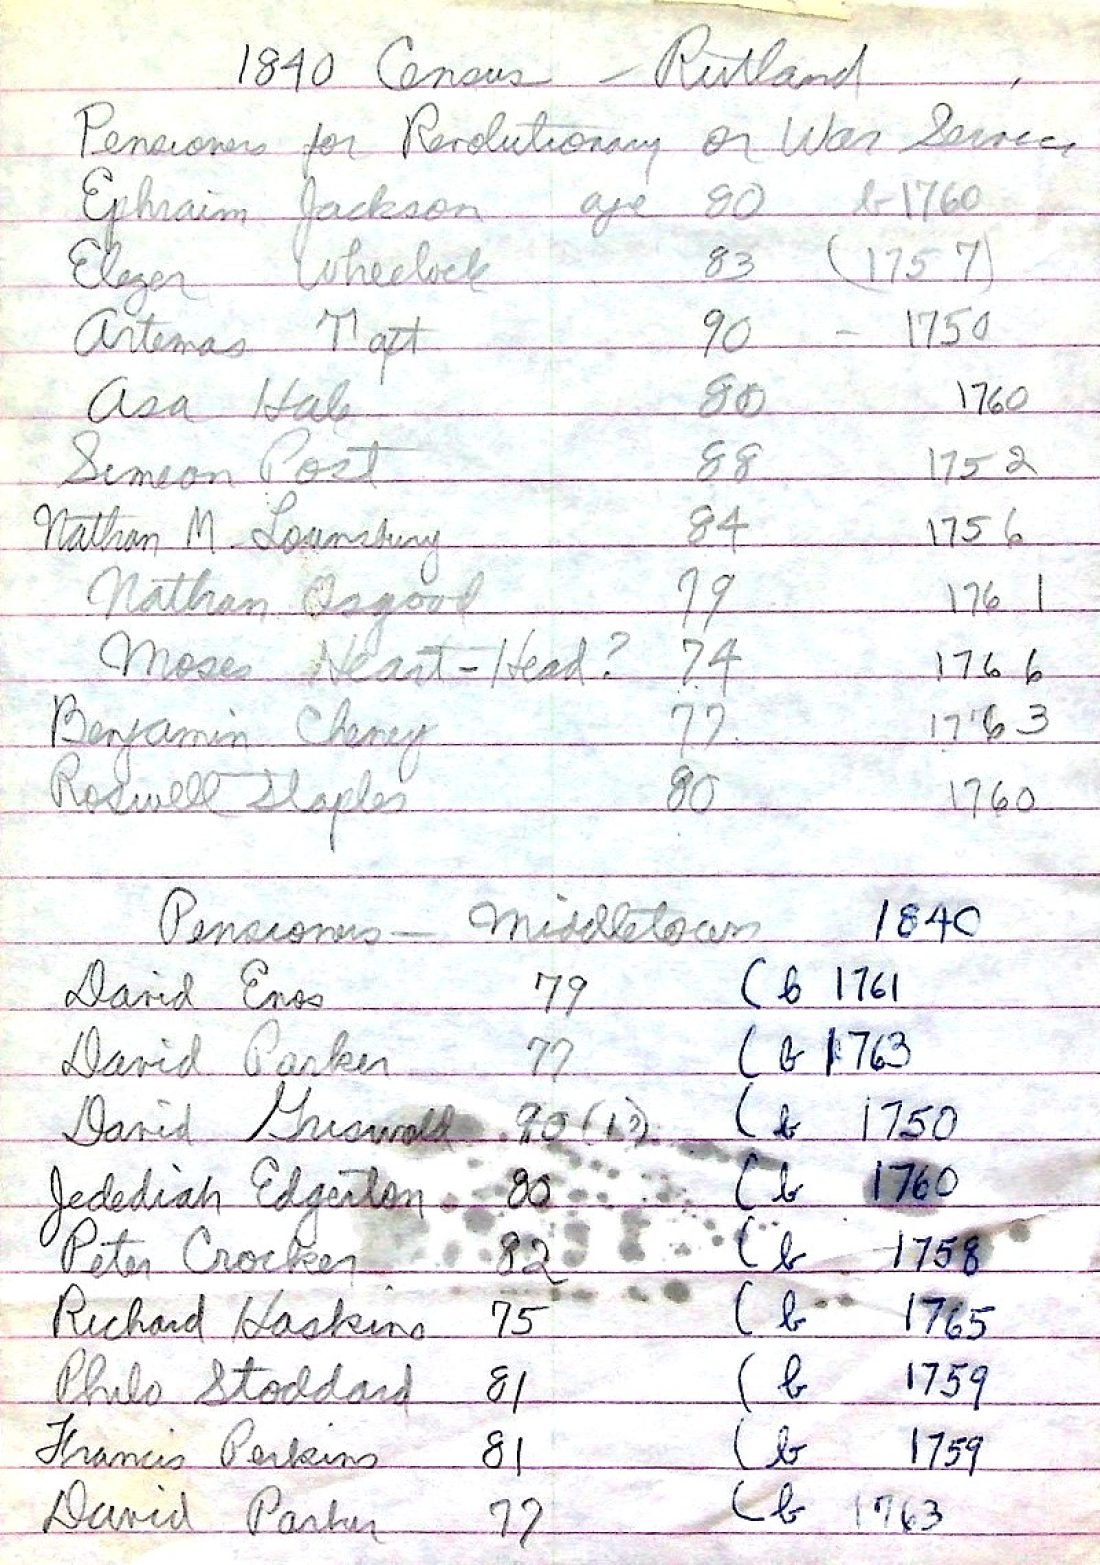 1840 Census - Rutland
Pensioners for Revolutionary or War Service
Ephraim Jackson age 80 b 1760
Elezer Wheelock 83 (1757)
Artemas Taft 90 - 1750
Asa Hale 80 1760
Simeon Post 88 1752
Nathan M Lounsbury 84 1756
Nathan Osgood 79 1761
Moses Heart-Head? 74 1766
Benjamin Cheney 77 1763
Roswell Staples 80 1760
Pensioners - Middletown 1840
David Enos 79 (b 1761
David Parker 77 (b 1763
David Griswold 90 (b 1750
Jedediah Edgerton 80 (b 1760
Peter Crocker 82 (b 1758
Richard Haskins 75 (b 1765
Philo Stoddard 81 (b 1759
Francis Perkins 81 (b 1759
David Parker 77 (b 1763